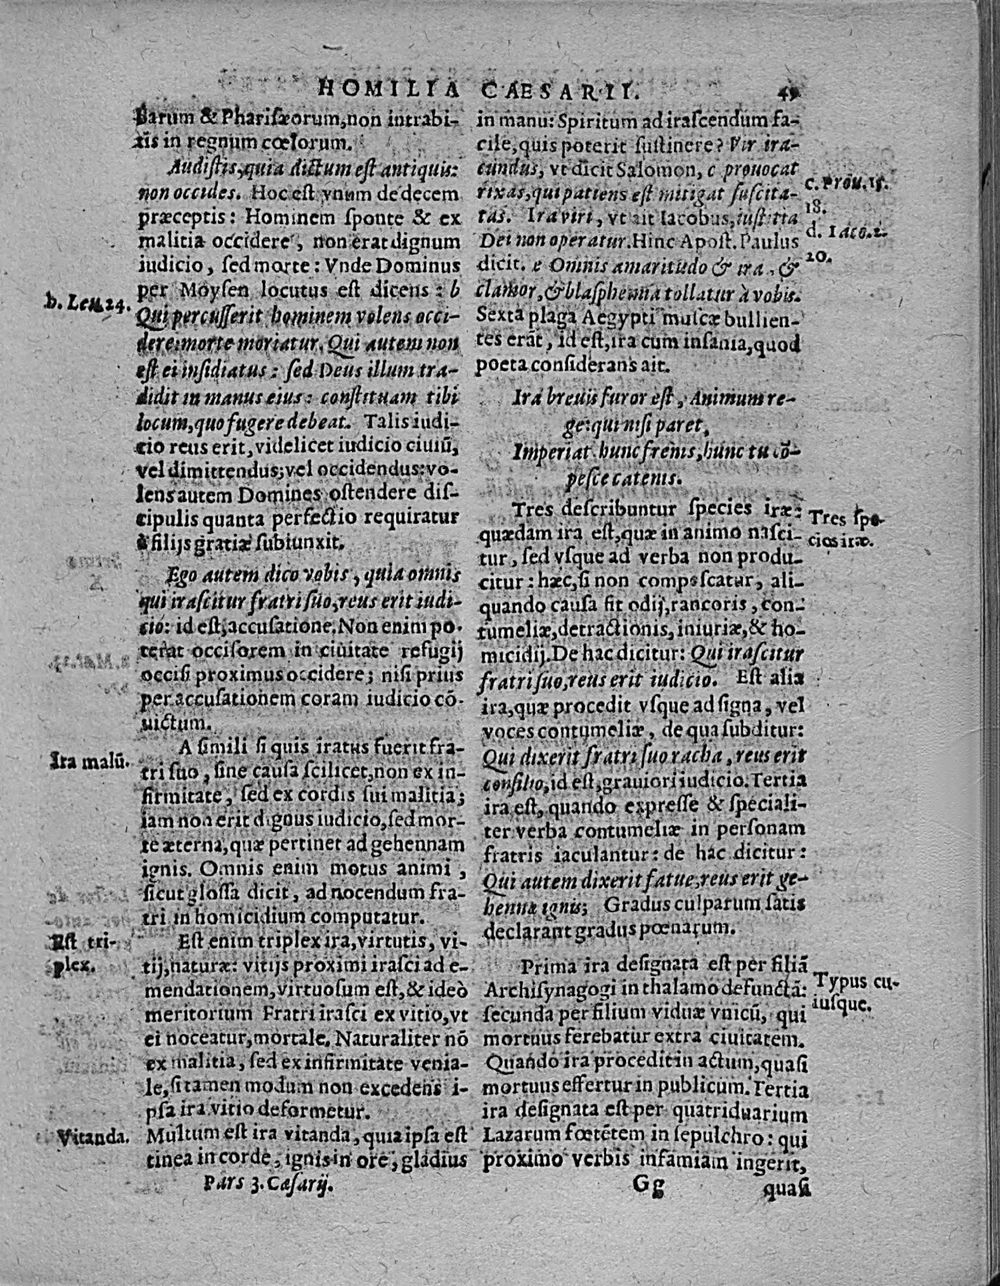 HOMILIA CÆSARII. 49
barum & Phariſæorum, non intrabi-
tis in regnum cœlorum.
Audiſtis, quia dictum eſt antiquis:
non occides. Hoc eſt vnum de decem
præceptis: Hominem ſponte & ex
malitia occidere, non erat dignum
iudicio, ſed morte: Vnde Dominus
per Moyſen locutus eſt dicens: b
b. Leu. 24.
Qui percuſſerit hominem volens occi-
dere: morte moriatur. Qui autem non
eſt ei inſidiatus: ſed Deus illum tra-
didit in manus eius: conſtituam tibi
locum, quo fugere debeat. Talis iudi-
cio reus erit, videlicet iudicio ciuiũ,
vel dimittendus; vel occidendus: vo-
lens autem Domines oſtendere diſ-
cipulis quanta perfectio requiratur
à filijs gratiæ ſubiunxit.
Ego autem dico vobis, quia omnis
qui iraſcitur fratri ſuo, reus erit iudi-
cio: id eſt, accuſatione. Non enim po-
terat occiſorem in ciuitate refugij
occiſi proximus occidere; niſi prius
per accuſationem coram iudicio cõ-
uictum.
Ira malũ.
A ſimili ſi quis iratus fuerit fra-
tri ſuo, ſine cauſa ſcilicet, non ex in-
firmitate, ſed ex cordis ſui malitia;
iam non erit dignus iudicio, ſed mor-
te æterna, quæ pertinet ad gehennam
ignis. Omnis enim motus animi,
ſicut gloſſa dicit, ad nocendum fra-
tri in homicidium computatur.
Eſt tri-
plex.
Eſt enim triplex ira, virtutis, vi-
tij, naturæ: vitijs proximi iraſci ad e-
mendationem, virtuoſum eſt, & ideò
meritorium Fratri iraſci ex vitio, vt
ei noceatur, mortale. Naturaliter nõ
ex malitia, ſed ex infirmitate venia-
le, ſi tamen modum non excedens i-
pſa ira vitio deformetur.
Vitanda.
Multum eſt ira vitanda, quia ipſa eſt
tinea in corde, ignis in ore, gladius
Pars 3. Cæſarij.
in manu: Spiritum ad iraſcendum fa-
cile, quis poterit ſuſtinere? Vir ira-
cundus, vt dicit Salomon, c prouocat
rixas, qui patiens eſt mitigat ſuſcita-
tas. Ira viri, vt ait Iacobus, iuſtitia
Dei non operatur. Hinc Apoſt. Paulus
dicit. e Omnis amaritudo & ira, &
clamor, & blaſphemia tollatur à vobis.
c. Prou. 15.
18.
d. Iaco. 1.
20.
Sexta plaga Aegypti muſcæ bullien-
tes erãt, id eſt, ira cum inſania, quod
poeta conſiderans ait.
Ira breuis furor eſt, Animum re-
ge: qui niſi paret,
Imperiat hunc frenis, hunc tu cõ-
peſce catenis.
Tres deſcribuntur ſpecies iræ:
quædam ira eſt, quæ in animo naſci-
Tres ſpe-
cios iræ.
tur, ſed vſque ad verba non produ-
citur: hæc, ſi non compeſcatur, ali-
quando cauſa fit odij, rancoris, con-
tumeliæ, detractionis, iniuriæ, & ho-
micidij. De hac dicitur: Qui iraſcitur
fratri ſuo, reus erit iudicio. Eſt alia
ira, quæ procedit vſque ad ſigna, vel
voces contumeliæ, de qua ſubditur:
Qui dixerit fratri ſuo racha, reus erit
conſilio, id eſt, grauiori iudicio. Tertia
ira eſt, quando expreſſe & ſpeciali-
ter verba contumeliæ in perſonam
fratris iaculantur: de hac dicitur:
Qui autem dixerit fatue, reus erit ge-
hennæ ignis; Gradus culparum ſatis
declarant gradus pœnarum.
Prima ira deſignata eſt per filiã
Archiſynagogi in thalamo defunctã:
Typus cu-
iuſque.
ſecunda per filium viduæ vnicũ, qui
mortuus ferebatur extra ciuitatem.
Quando ira procedit in actum, quaſi
mortuus effertur in publicum. Tertia
ira deſignata eſt per quatriduarium
Lazarum fœtẽtem in ſepulchro: qui
proximo verbis infamiam ingerit,
Gg
quaſi